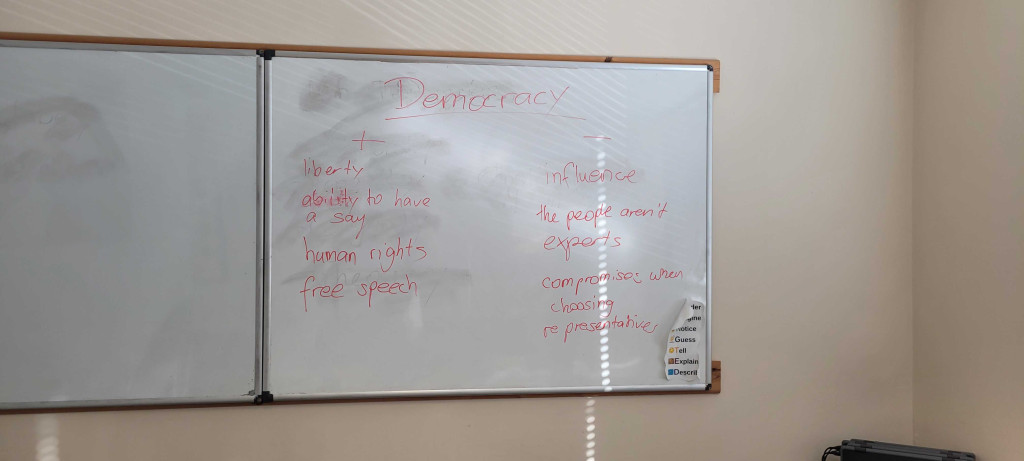 Democracy
+
liberty
ability to have
a say
human rights
free speech
−
influence
the people aren't
experts
compromises when
choosing
representatives
Notice
Guess
Tell
Explain